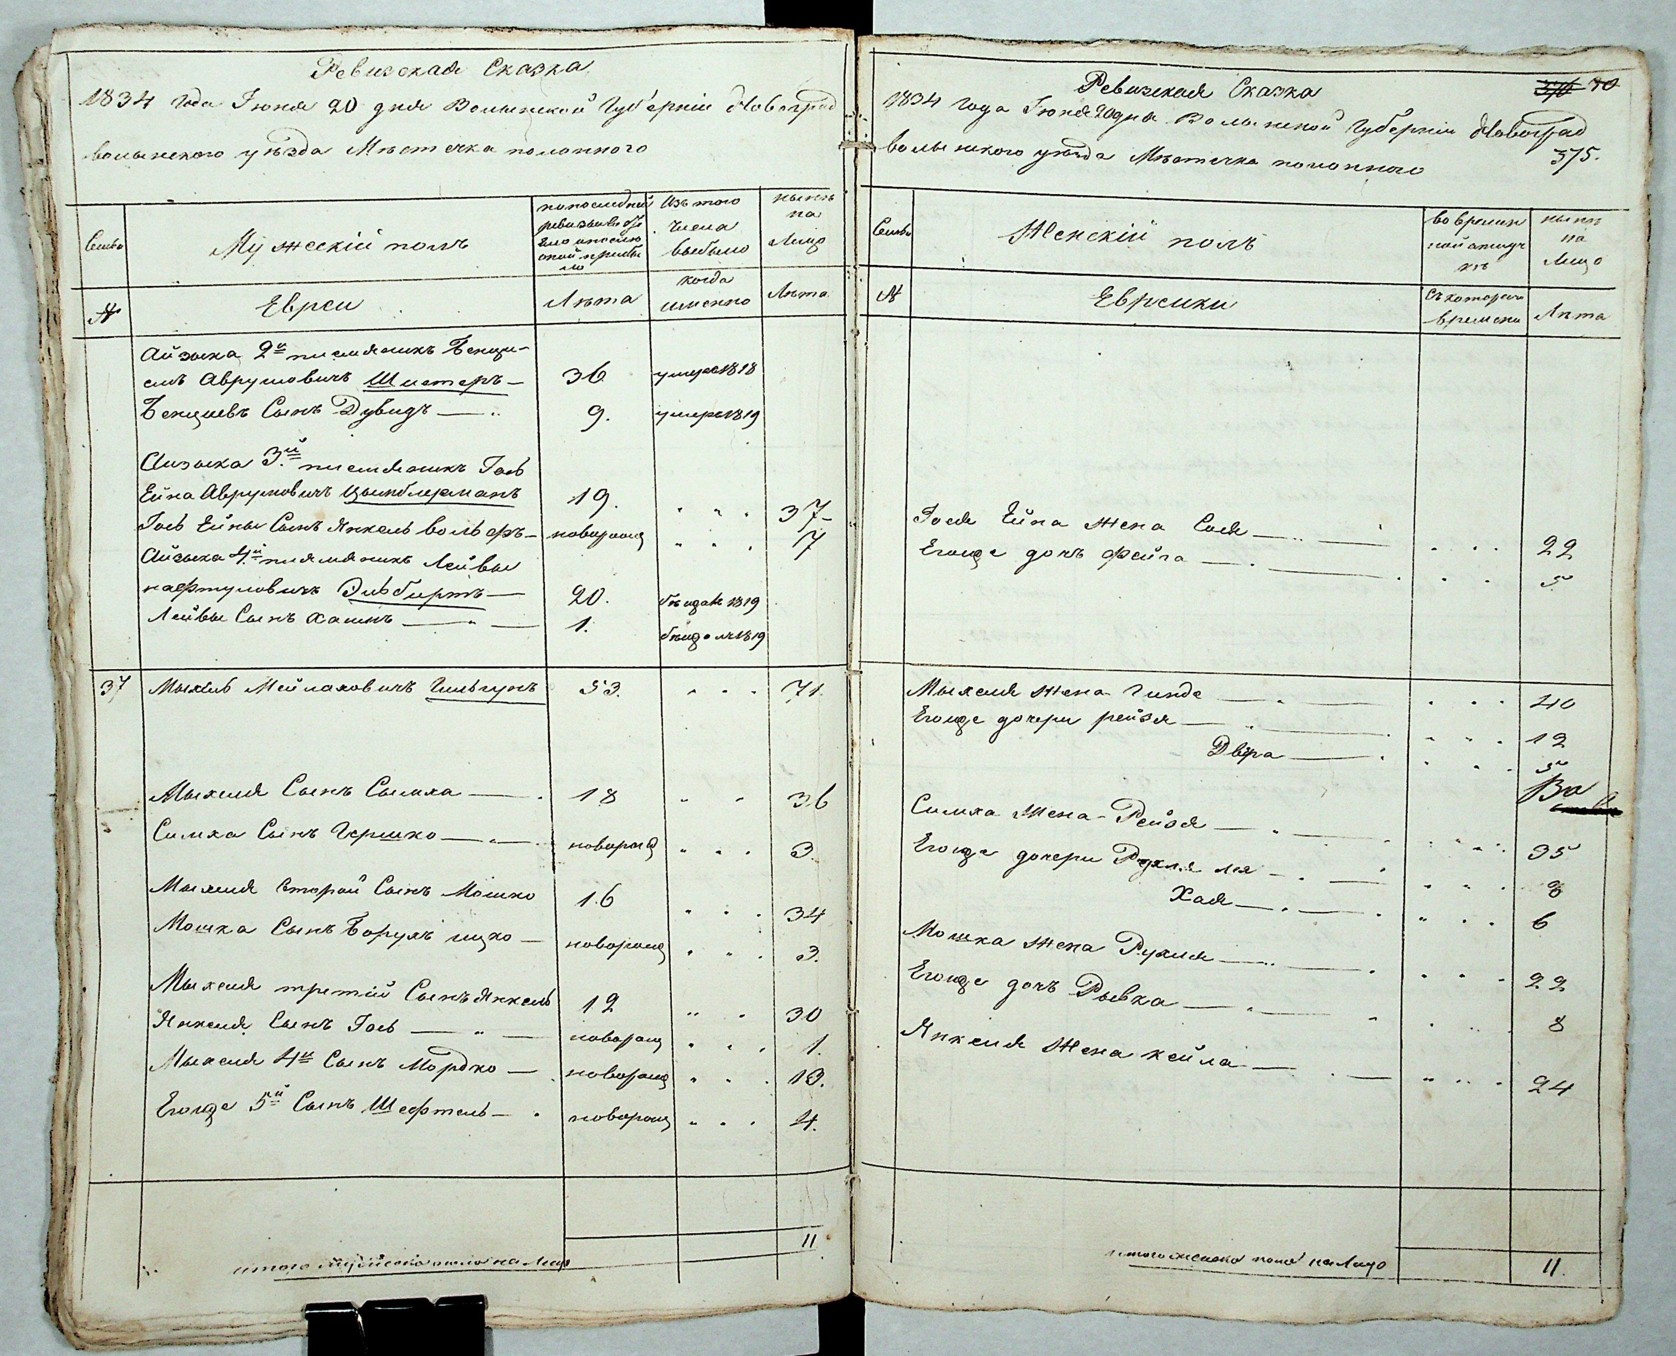 Ревизская Сказка
1834 Года Іюня 20 дня Волынской Губерніи Новоград
волынского уѣзда Мѣстечка полонного
Семьи
Мужескій полъ
по последней
ревизіи
Изъ того
числа
выбыло
нынѣ
на
Лицо
№
Евреи
Лѣта
когда
именно
Лѣта
Айзыка 2й племянникъ Бенци-
онъ Аврумовичъ Шистеръ — 36 умеръ 1818
Бенціевъ Сынъ Дувидъ — 9. умеръ 1819
Айзыка 3й племянникъ Гось
Ейна Аврумовичъ Цымберманъ 19. 37
Гось Ейны Сынъ Янкель вольфъ — новорожд 7
Айзыка 4й племяникъ Лейвы
нафтуловичъ 20. бѣжалъ 1819
Лейвы Сынъ Хаимъ — 1. бѣжалъ 1819
37 Мыхель Мейлаховичъ 53. 71.
Мыхеля Сынъ Сымха — 18 36
Симха Сынъ Гершко — новорожд 3.
Мыхеля второй Сынъ Мошко 16 34
Мошка Сынъ Борухъ ицко — новорожд 3.
Мыхеля третій Сынъ Янкель 12 30
Янкеля Сынъ Гось — новорожд 1.
Мыхеля 4й Сынъ Мордко — новорожд 13.
Егожде 5й Сынъ Шефтель — новорожд 4.
11
итого мужеска пола на Лицо
Ревизская Сказка
70
1834 Года Іюня 20 дня Волынской Губерніи Новоград
375.
волынского уѣзда Мѣстечка полонного
Семьи
Женскій полъ
во времян
ной отлуч
кѣ
нынѣ
на
Лицо
№
Еврейки
Съ которого
времени
Лѣта
Гося Ейна жена Сося — 22
Егожде дочъ Фейга — 5
Мыхеля жена Гинде — 40
Егожде дочери рейзя — 12
Двера — 5
Симха жена Рейзя — 35
Егожде дочери Рухля лея — 8
Хая — 6
Мошка жена Рухля — 22
Егожде дочъ Рывка — 8
Янкеля жена кейла — 24
итого женска пола на Лицо 11.